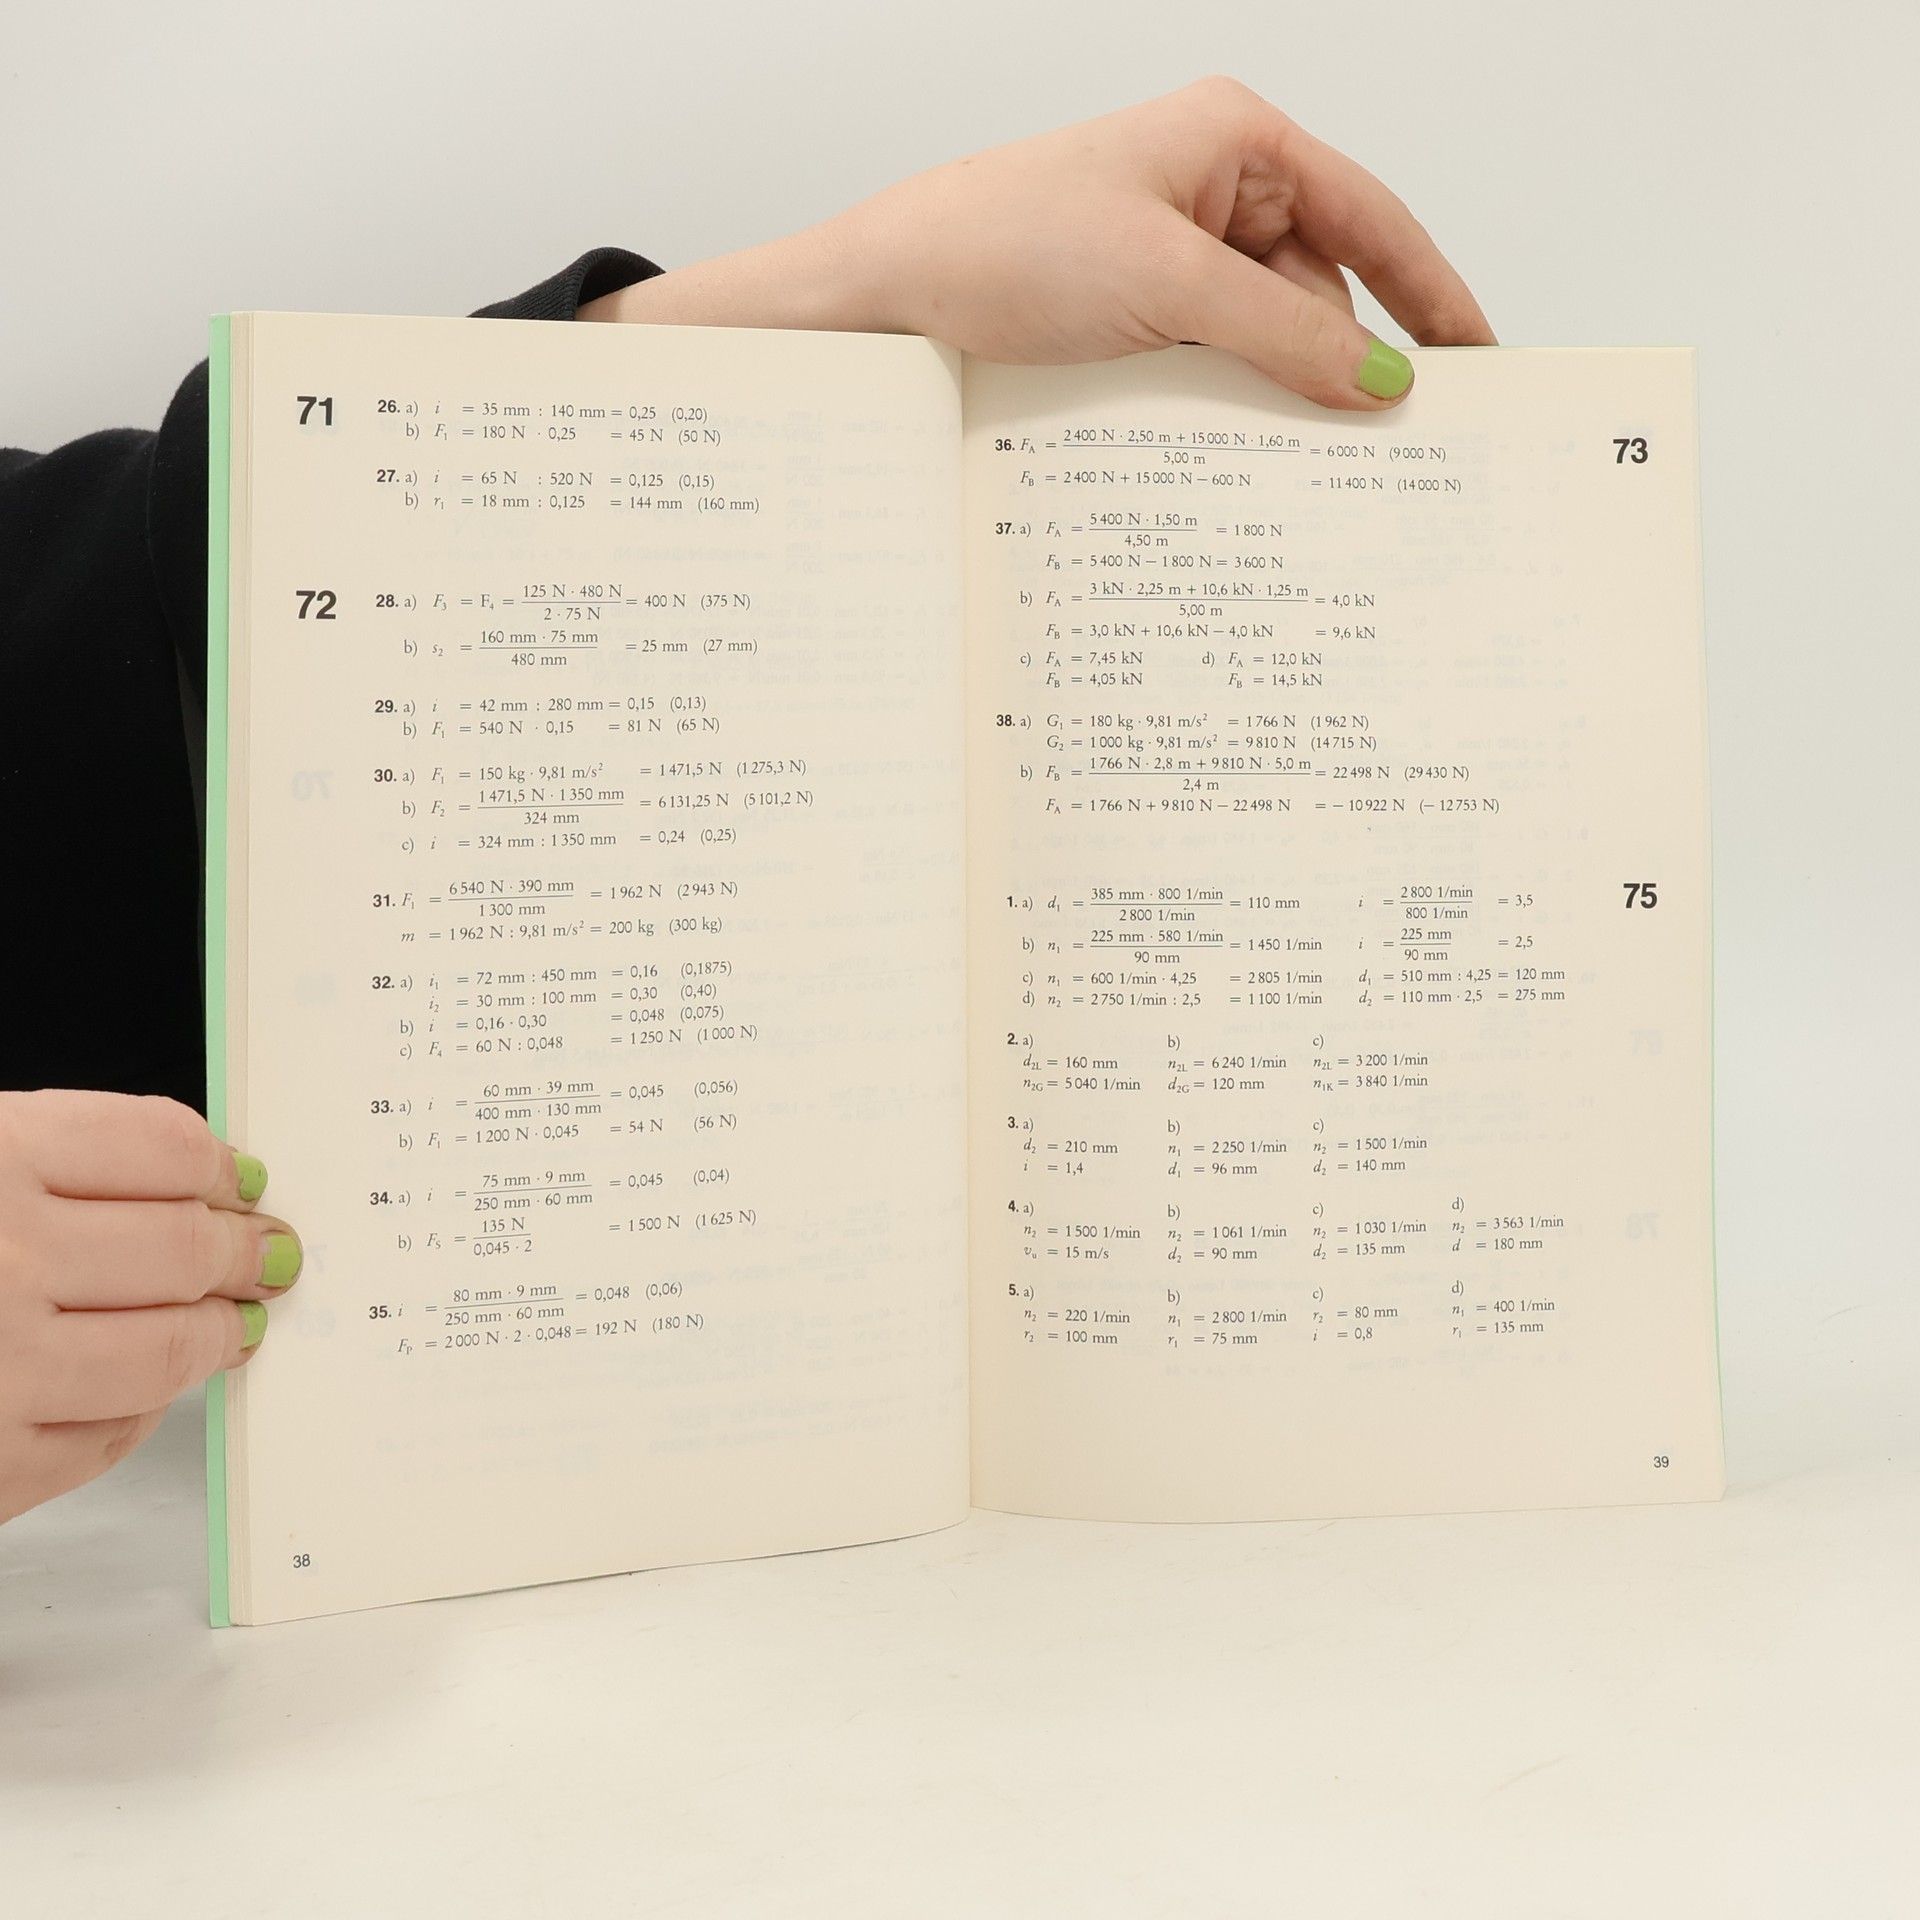 71
26. a) i = 35 mm : 140 mm = 0,25 (0,20)
b) F₁ = 180 N · 0,25 = 45 N (50 N)
27. a) i = 65 N : 520 N = 0,125 (0,15)
b) r₁ = 18 mm : 0,125 = 144 mm (160 mm)
72
28. a) F₃ = F₄ = 125 N · 480 N / 2 · 75 N = 400 N (375 N)
b) s₂ = 160 mm · 75 mm / 480 mm = 25 mm (27 mm)
29. a) i = 42 mm : 280 mm = 0,15 (0,13)
b) F₁ = 540 N · 0,15 = 81 N (65 N)
30. a) F₁ = 150 kg · 9,81 m/s² = 1 471,5 N (1 275,3 N)
b) F₂ = 1 471,5 N · 1 350 mm / 324 mm = 6 131,25 N (5 101,2 N)
c) i = 324 mm : 1 350 mm = 0,24 (0,25)
31. F₁ = 6 540 N · 390 mm / 1 300 mm = 1 962 N (2 943 N)
m = 1 962 N : 9,81 m/s² = 200 kg (300 kg)
32. a) i₁ = 72 mm : 450 mm = 0,16 (0,1875)
i₂ = 30 mm : 100 mm = 0,30 (0,40)
b) i = 0,16 · 0,30 = 0,048 (0,075)
c) F₄ = 60 N : 0,048 = 1 250 N (1 000 N)
33. a) i = 60 mm · 39 mm / 400 mm · 130 mm = 0,045 (0,056)
b) F₁ = 1 200 N · 0,045 = 54 N (56 N)
34. a) i = 75 mm · 9 mm / 250 mm · 60 mm = 0,045 (0,04)
b) Fₛ = 135 N / 0,045 · 2 = 1 500 N (1 625 N)
35. i = 80 mm · 9 mm / 250 mm · 60 mm = 0,048 (0,06)
Fₚ = 2 000 N · 2 · 0,048 = 192 N (180 N)
38
73
36. F_A = 2 400 N · 2,50 m + 15 000 N · 1,60 m / 5,00 m = 6 000 N (9 000 N)
F_B = 2 400 N + 15 000 N – 600 N = 11 400 N (14 000 N)
37. a) F_A = 5 400 N · 1,50 m / 4,50 m = 1 800 N
F_B = 5 400 N – 1 800 N = 3 600 N
b) F_A = 3 kN · 2,25 m + 10,6 kN · 1,25 m / 5,00 m = 4,0 kN
F_B = 3,0 kN + 10,6 kN – 4,0 kN = 9,6 kN
c) F_A = 7,45 kN d) F_A = 12,0 kN
F_B = 4,05 kN F_B = 14,5 kN
38. a) G₁ = 180 kg · 9,81 m/s² = 1 766 N (1 962 N)
G₂ = 1 000 kg · 9,81 m/s² = 9 810 N (14 715 N)
b) F_B = 1 766 N · 2,8 m + 9 810 N · 5,0 m / 2,4 m = 22 498 N (29 430 N)
F_A = 1 766 N + 9 810 N – 22 498 N = – 10 922 N (– 12 753 N)
75
1. a) d₁ = 385 mm · 800 1/min / 2 800 1/min = 110 mm i = 2 800 1/min / 800 1/min = 3,5
b) n₁ = 225 mm · 580 1/min / 90 mm = 1 450 1/min i = 225 mm / 90 mm = 2,5
c) n₁ = 600 1/min · 4,25 = 2 805 1/min d₁ = 510 mm : 4,25 = 120 mm
d) n₂ = 2 750 1/min : 2,5 = 1 100 1/min d₂ = 110 mm · 2,5 = 275 mm
2. a) b) c)
d₂L = 160 mm n₂L = 6 240 1/min n₂L = 3 200 1/min
n₂G = 5 040 1/min d₂G = 120 mm n₁K = 3 840 1/min
3. a) b) c)
d₂ = 210 mm n₁ = 2 250 1/min n₂ = 1 500 1/min
i = 1,4 d₁ = 96 mm d₂ = 140 mm
4. a) b) c) d)
n₂ = 1 500 1/min n₂ = 1 061 1/min n₂ = 1 030 1/min n₂ = 3 563 1/min
vᵤ = 15 m/s d₂ = 90 mm d₂ = 135 mm d = 180 mm
5. a) b) c) d)
n₂ = 220 1/min n₁ = 2 800 1/min r₂ = 80 mm n₁ = 400 1/min
r₂ = 100 mm r₁ = 75 mm i = 0,8 r₁ = 135 mm
39